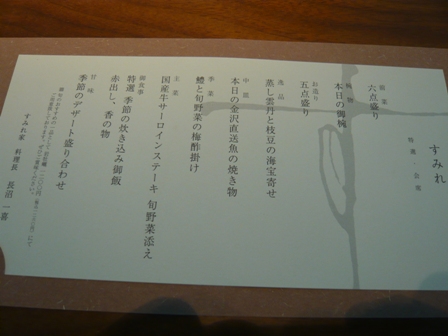 すみれ
特選 会席
前菜
六点盛り
椀物
本日の御椀
お造り
五点盛り
逸品
蒸し雲丹と枝豆の海宝寄せ
中皿
本日の金沢直送魚の焼き物
季菜
鱧と旬野菜の梅酢掛け
主菜
国産牛サーロインステーキ 旬野菜添え
御食事
特選 季節の炊き込み御飯
赤出し、香の物
甘味
季節のデザート盛り合わせ
すみれ家 料理長 長沼 一喜